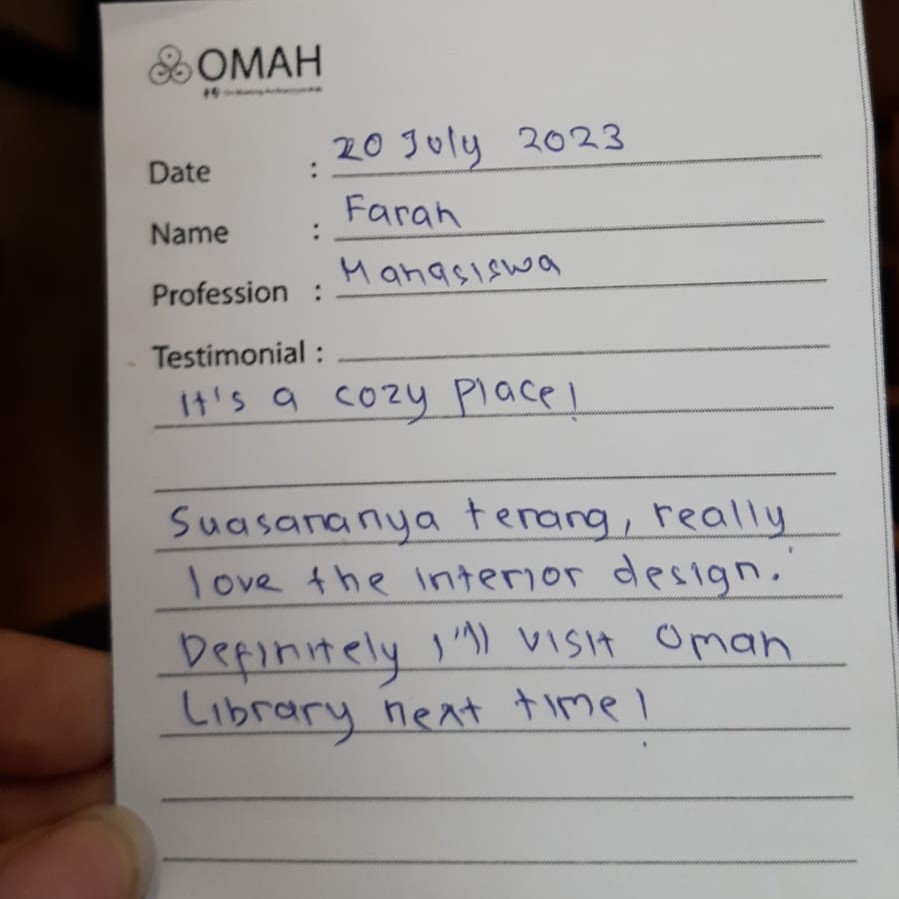 OMAH
Date : 20 July 2023
Name : Farah
Profession : Mahasiswa
Testimonial :
It's a cozy place!
Suasananya terang, really
love the interior design.
Definitely I'll visit Omah
Library next time!